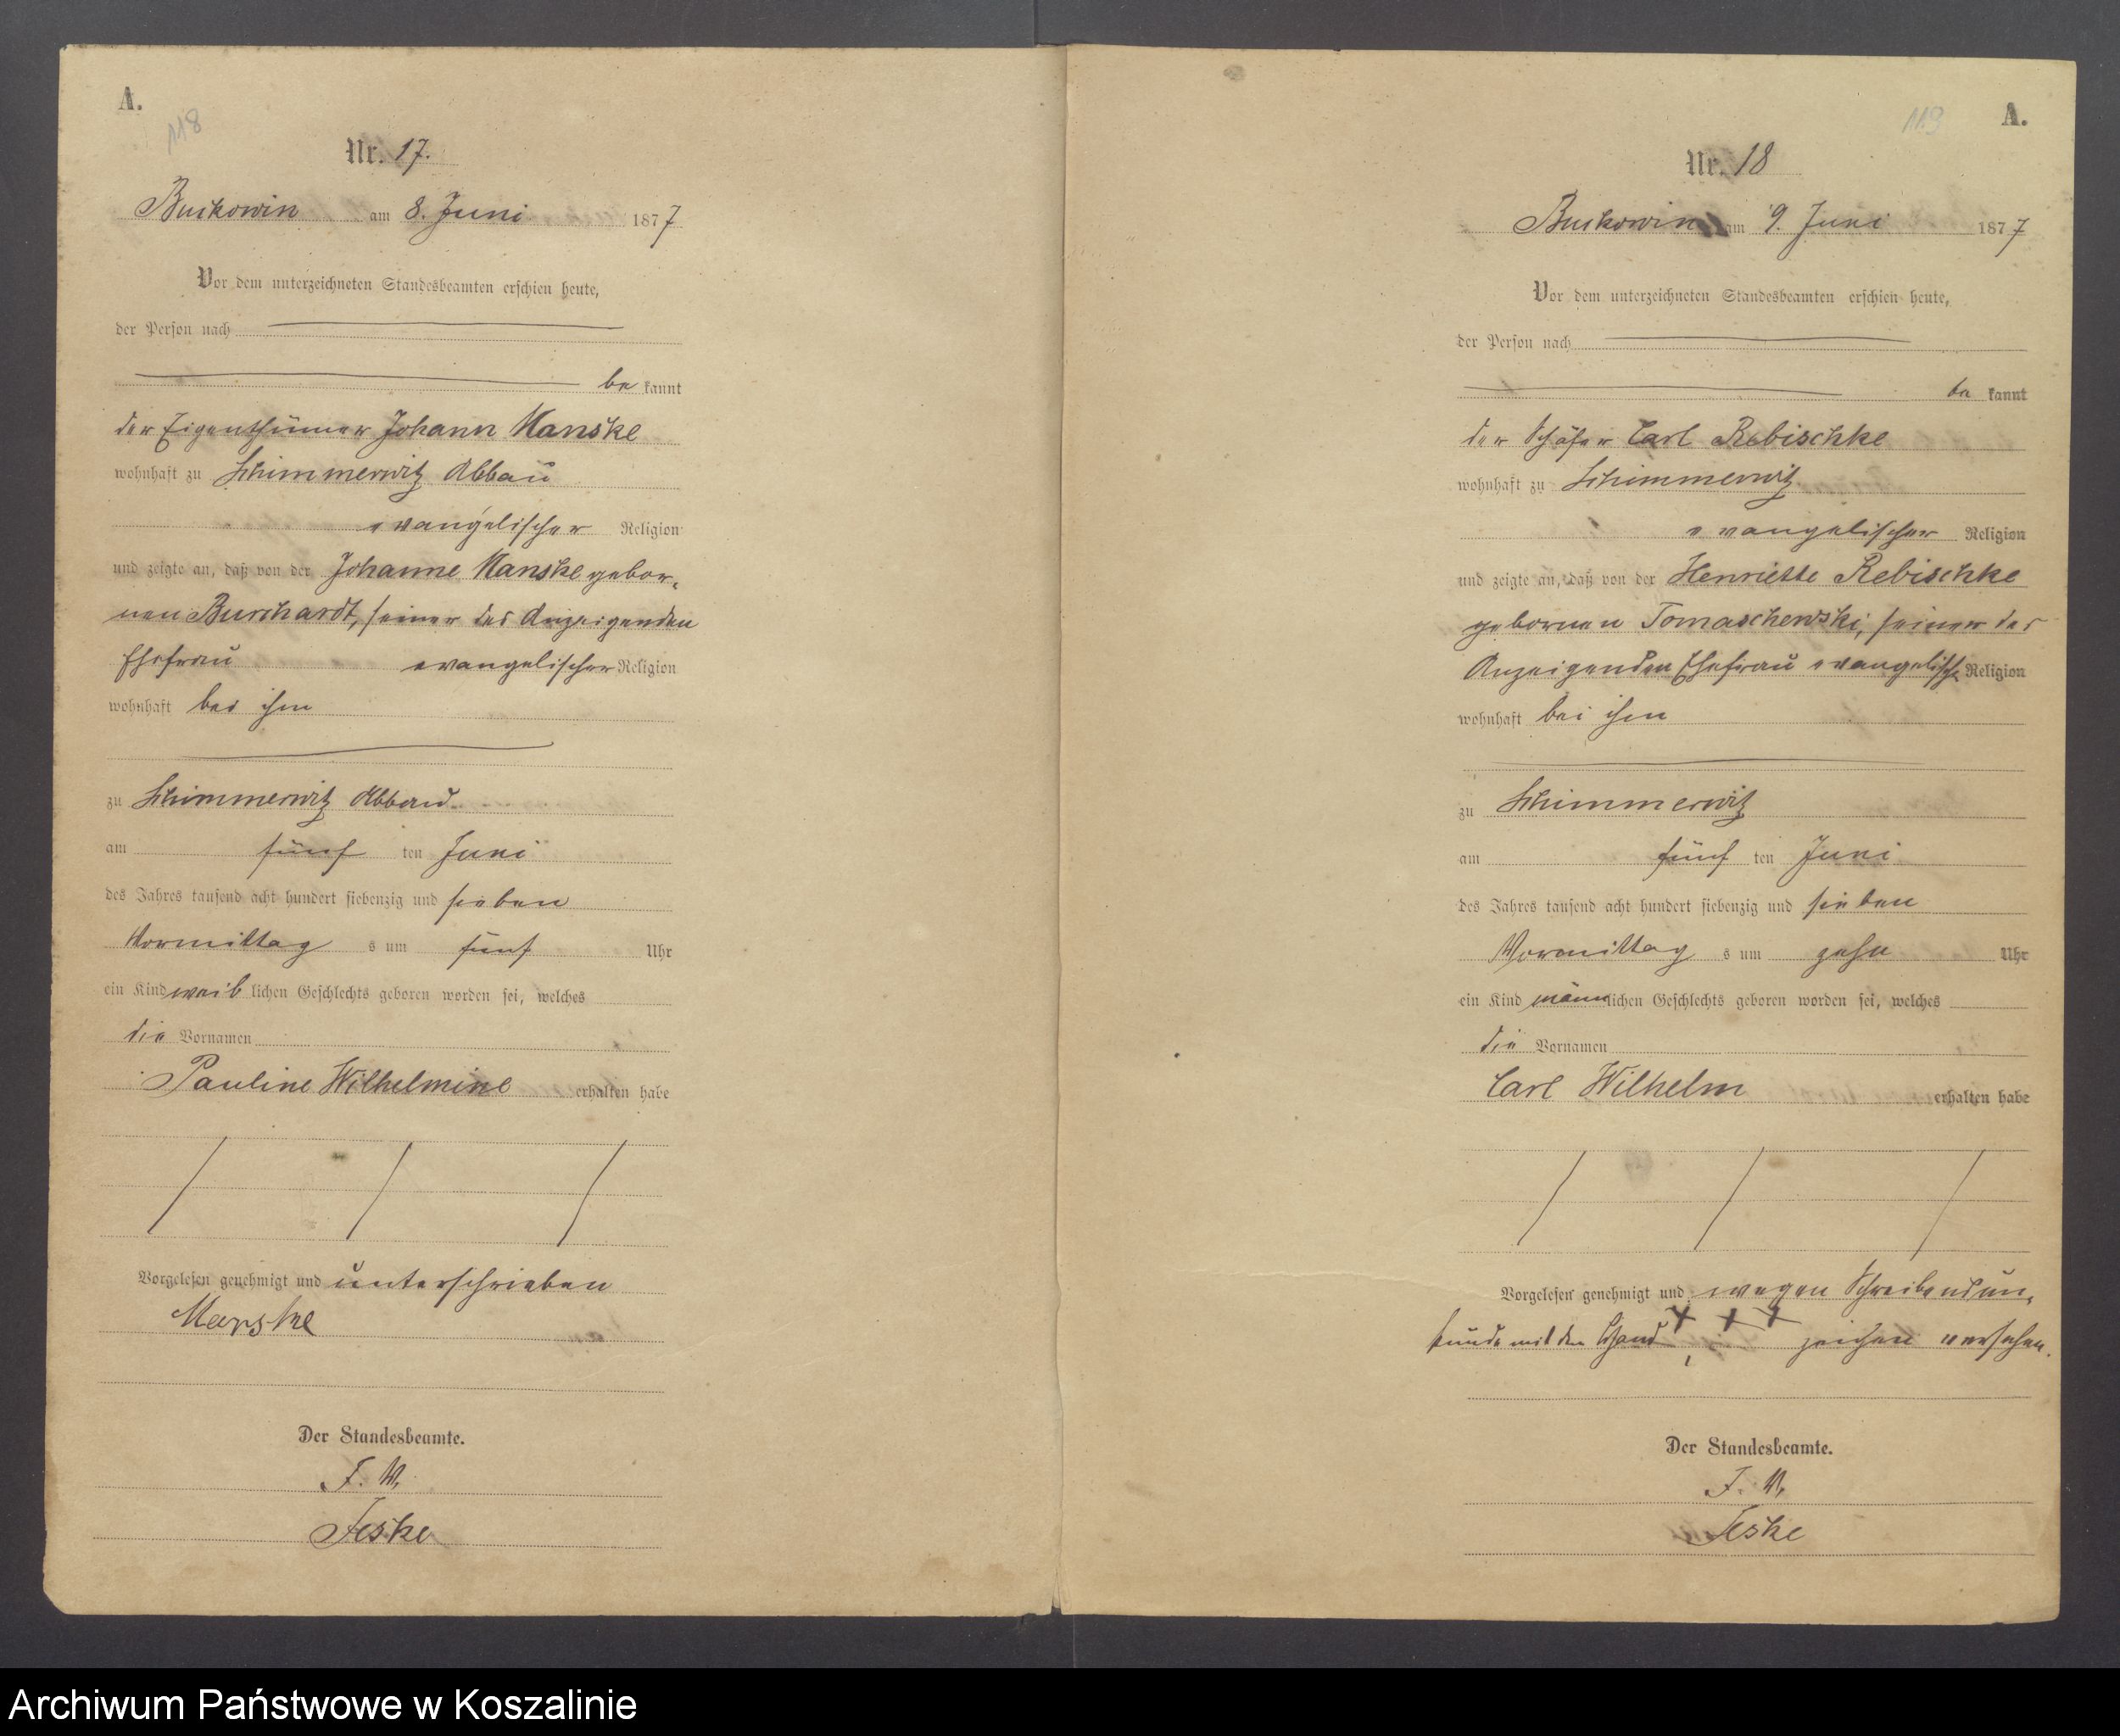 A.
118
Nr. 17.
Buckowin am 8. Juni 1877
Vor dem unterzeichneten Standesbeamten erschien heute,
der Person nach
be kannt
der Eigenthümer Johann Manske
wohnhaft zu Schimmerwitz Abbau
evangelischer Religion
und zeigte an, daß von der Johanne Manske gebor-
nen Burchardt, seiner des Anzeigenden
Ehefrau evangelischer Religion
wohnhaft bei ihm
zu Schimmerwitz Abbau
am fünf ten Juni
des Jahres tausend acht hundert siebenzig und sieben
Vormittag s um fünf Uhr
ein Kind weib lichen Geschlechts geboren worden sei, welches
die Vornamen
Pauline Wilhelmine erhalten habe
Vorgelesen genehmigt und unterschrieben
Manske
Der Standesbeamte.
F. W.
Jeske
119
A.
Nr. 18
Buckowin am 9. Juni 1877
Vor dem unterzeichneten Standesbeamten erschien heute,
der Person nach
be kannt
der Schäfer Carl Rebischke
wohnhaft zu Schimmerwitz
evangelischer Religion
und zeigte an, daß von der Henriette Rebischke
gebornen Tomaschewski, seiner des
Anzeigenden Ehefrau evangelisch. Religion
wohnhaft bei ihm
zu Schimmerwitz
am fünf ten Juni
des Jahres tausend acht hundert siebenzig und sieben
Vormittag s um zehn Uhr
ein Kind männlichen Geschlechts geboren worden sei, welches
die Vornamen
Carl Wilhelm erhalten habe
Vorgelesen genehmigt und wegen Schreibensun-
kunde mit den Hand +++ zeichen versehen.
Der Standesbeamte.
F. W.
Jeske
Archiwum Państwowe w Koszalinie